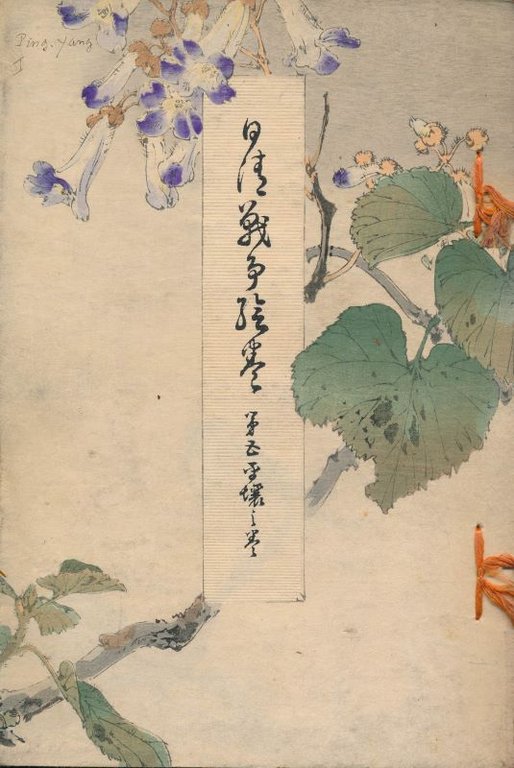 Ping-Yang
I
日清戦争絵巻 第五平壌之巻